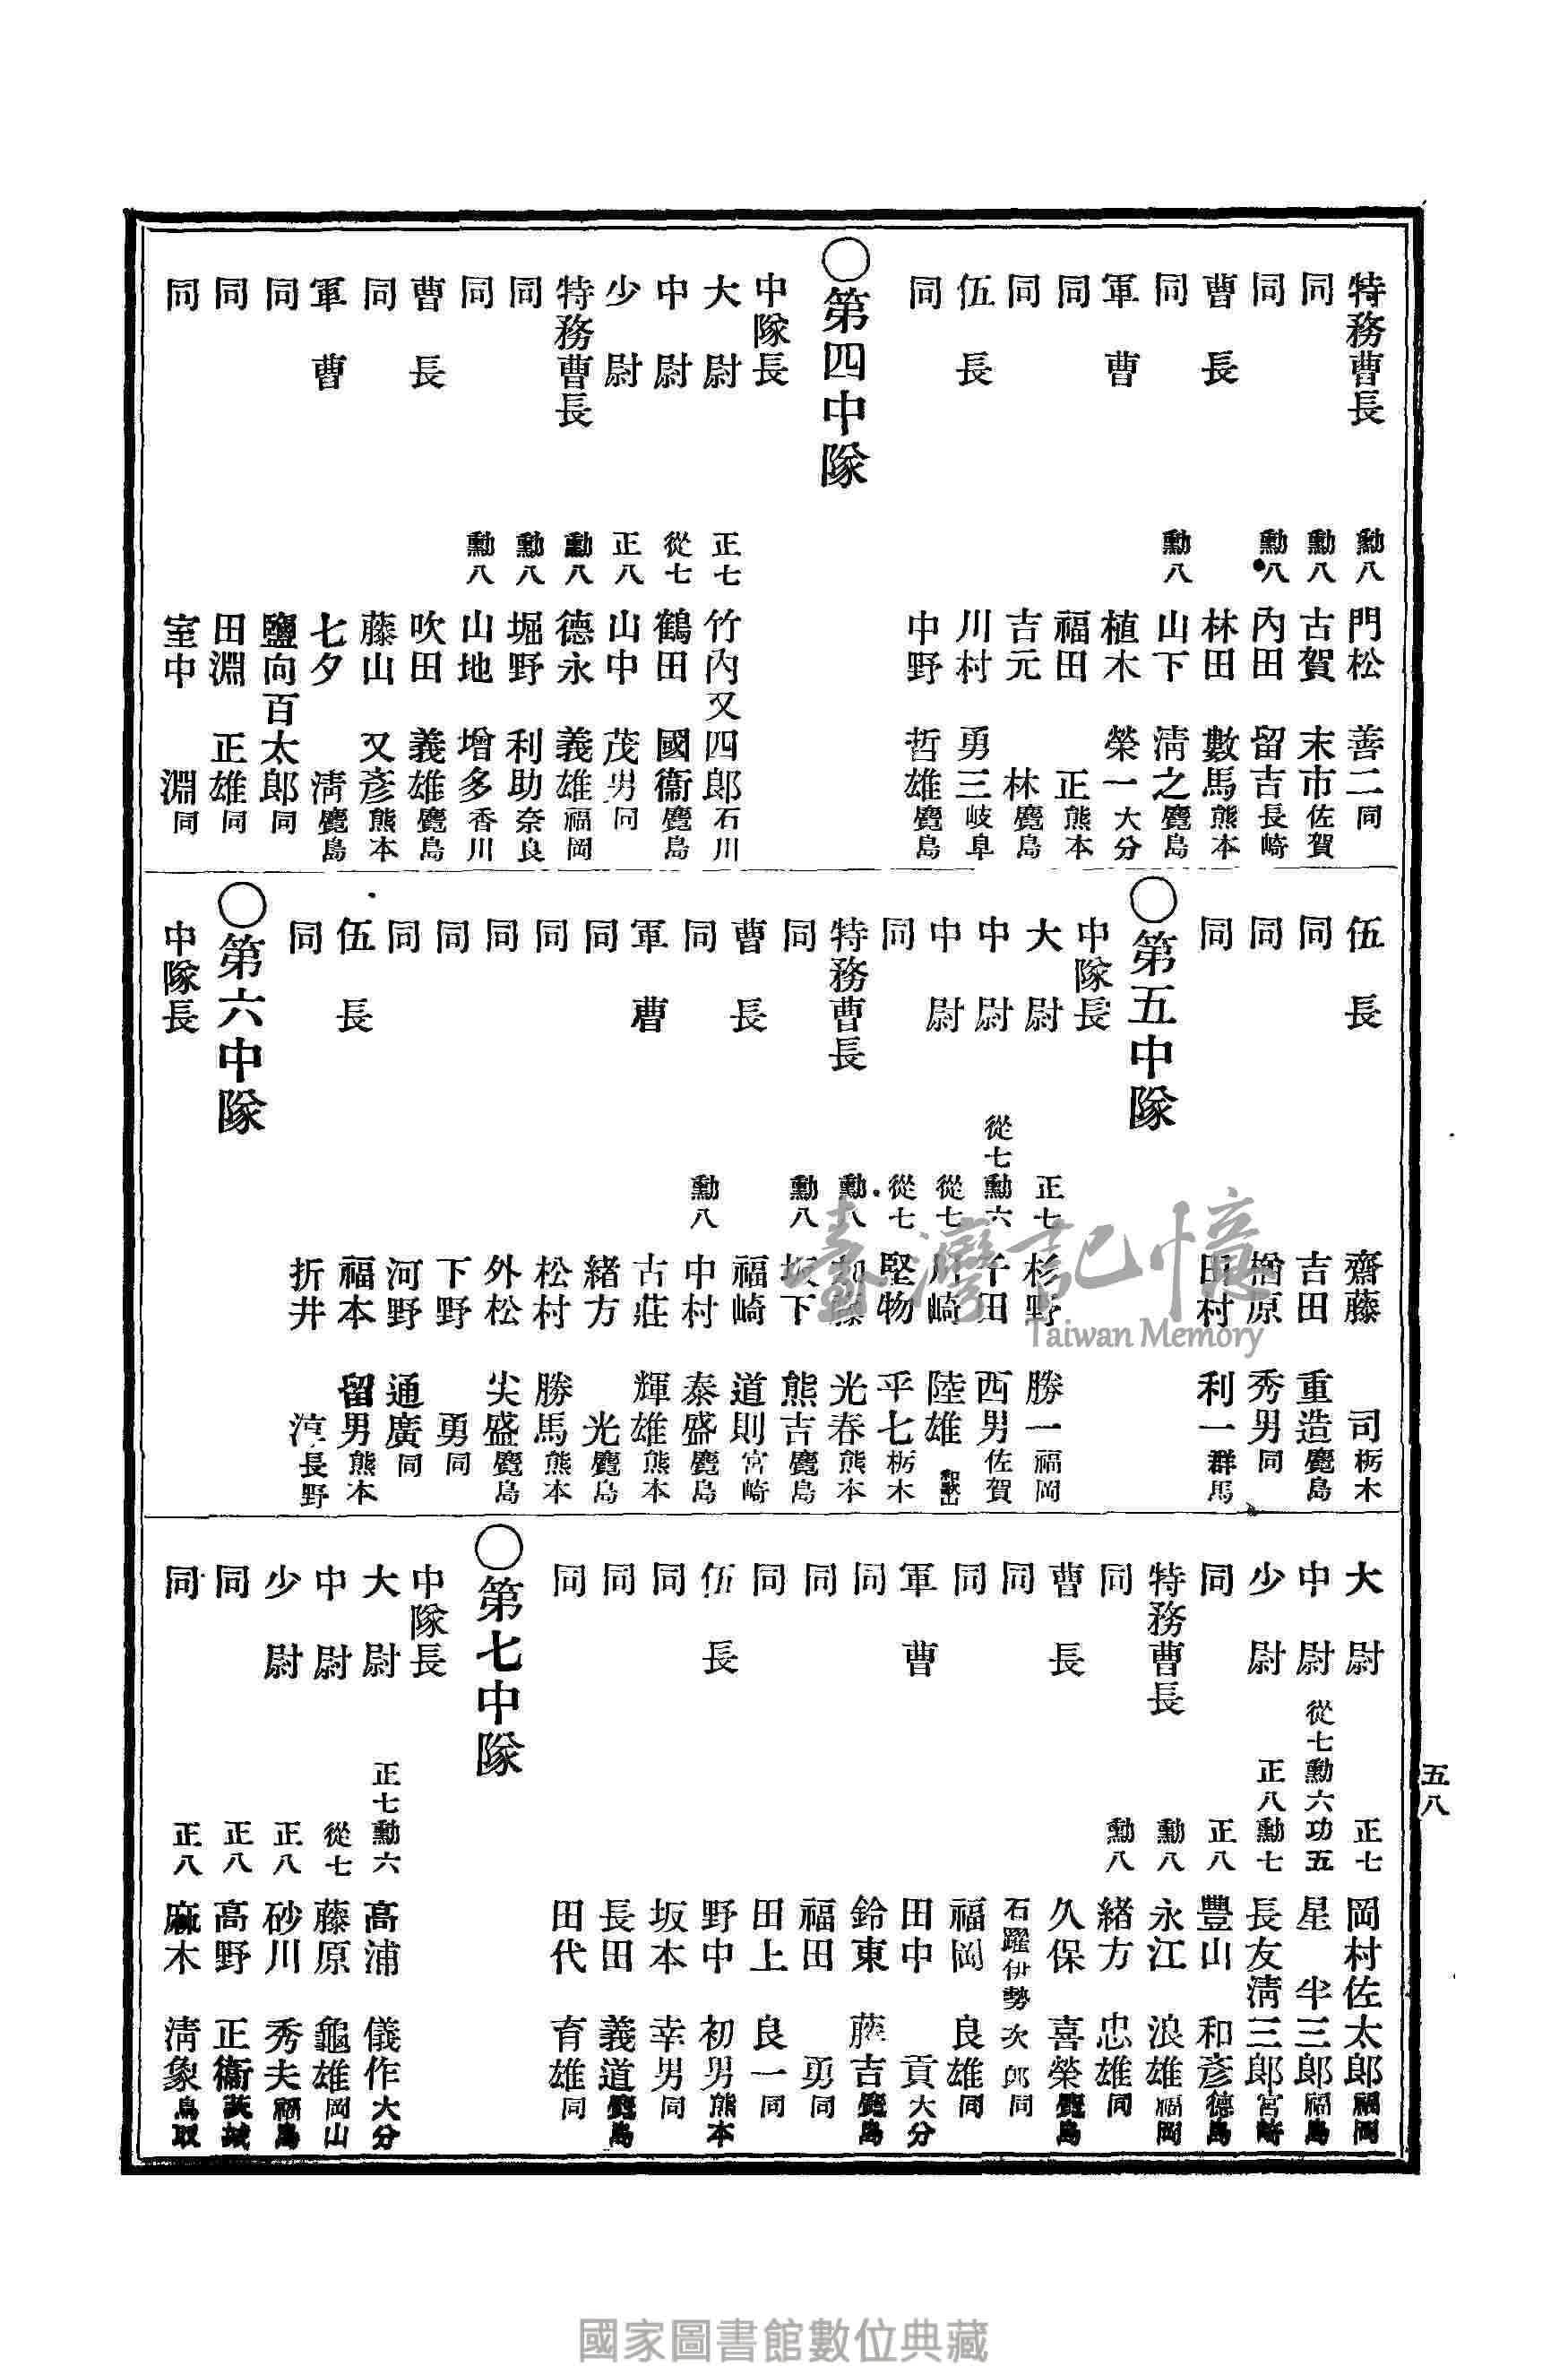 特務曹長 勳八 門松 善二 同
同 勳八 古賀 末市 佐賀
同 勳八 內田 留吉 長崎
曹長 林田 數馬 熊本
同 勳八 山下 淸之 鹿兒島
軍曹 植木 榮一 大分
同 福田 正 熊本
同 吉元 林 鹿兒島
伍長 川村 勇三 岐阜
同 中野 哲雄 鹿兒島
○第四中隊
中隊長
大尉 正七 竹內又四郎 石川
中尉 從七 鶴田 國衞 鹿兒島
少尉 正八 山中 茂男 同
特務曹長 勳八 德永 義雄 福岡
同 勳八 堀野 利助 奈良
同 勳八 山地 增多 香川
曹長 吹田 義雄 鹿兒島
同 藤山 又彥 熊本
軍曹 七夕 淸 鹿兒島
同 鹽向百太郎 同
同 田淵 正雄 同
同 室中 淵 同
伍長 齋藤 司 栃木
同 吉田 重造 鹿兒島
同 楢原 秀男 同
同 田村 利一 群馬
○第五中隊
中隊長
大尉 正七 杉野 勝一 福岡
中尉 從七勳六 千田 西男 佐賀
中尉 從七 川崎 陸雄 和歌山
同 從七 堅物 平七 栃木
特務曹長 勳八 加藤 光春 熊本
同 勳八 坂下 熊吉 鹿兒島
曹長 福崎 道則 宮崎
同 勳八 中村 泰盛 鹿兒島
軍曹 古莊 輝雄 熊本
同 緒方 光 鹿兒島
同 松村 勝馬 熊本
同 外松 尖盛 鹿兒島
同 下野 勇 同
同 河野 通廣 同
伍長 福本 留男 熊本
同 折井 淳 長野
○第六中隊
中隊長
大尉 正七 岡村佐太郎 福岡
中尉 從七勳六功五 星 半三郎 福島
少尉 正八勳七 長友淸三郎 宮崎
同 正八 豐山 和彥 德島
特務曹長 勳八 永江 浪雄 福岡
同 勳八 緒方 忠雄 同
曹長 久保 喜榮 鹿兒島
同 石躍伊勢次郎 同
同 福岡 良雄 同
軍曹 田中 貢 大分
同 鈴東 藤吉 鹿兒島
同 福田 勇 同
同 田上 良一 同
伍長 野中 初男 熊本
同 坂本 幸男 同
同 長田 義道 鹿兒島
同 田代 育雄 同
○第七中隊
中隊長
大尉 正七勳六 高浦 儀作 大分
中尉 從七 藤原 龜雄 岡山
少尉 正八 砂川 秀夫 福島
同 正八 高野 正衞 茨城
同 正八 麻木 淸象 鳥取
五八
臺灣記憶
Taiwan Memory
國家圖書館數位典藏